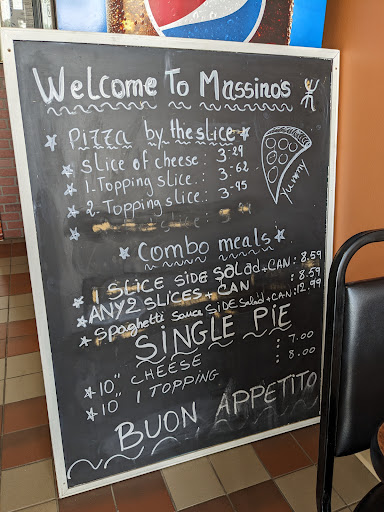 Welcome To Massino's
Pizza by the slice
slice of cheese : 3-29
1. Topping slice : 3-62
2. Topping slice : 3-95
Yummy
Combo meals
1 SLICE SIDE SALAD + CAN : 8.59
ANY 2 SLICES + CAN : 8.59
Spaghetti Sauce SIDE Salad + CAN : 12.99
SINGLE PIE
10" CHEESE : 7.00
10" 1 TOPPING : 8.00
BUON APPETITO